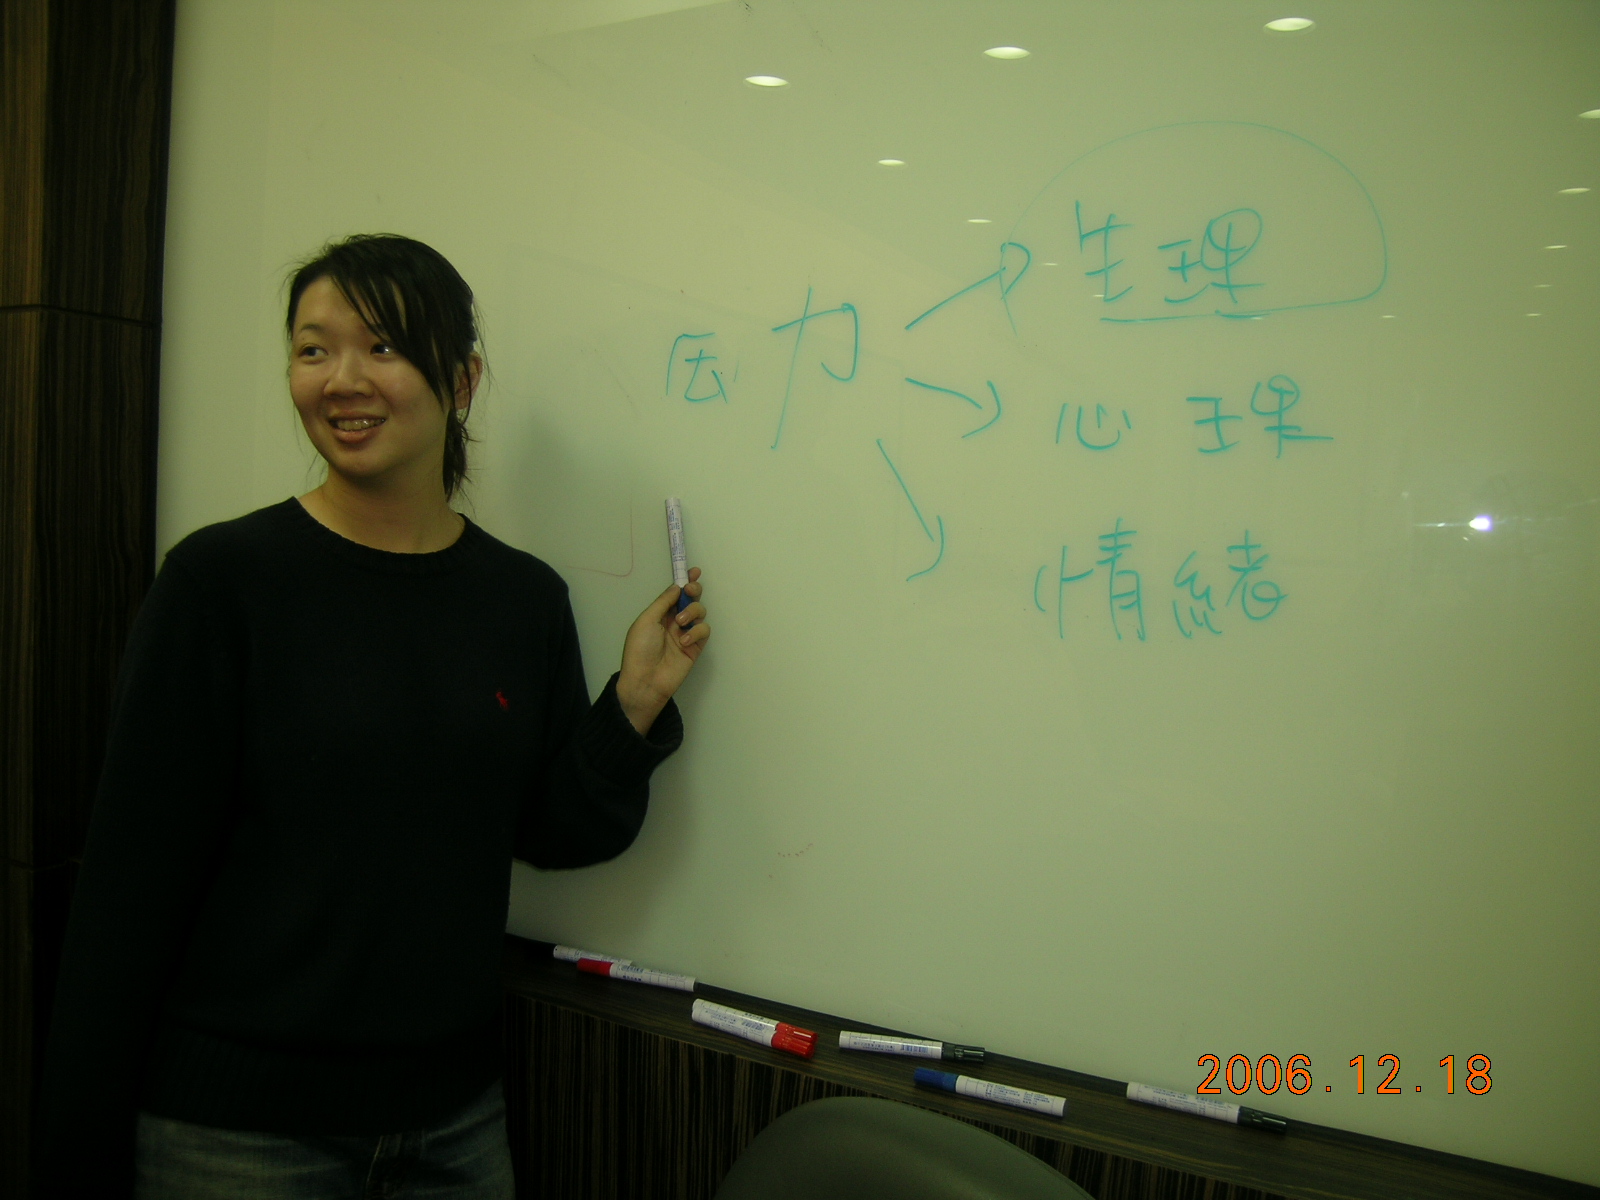 压力
生理
心理
情緒
2006.12.18